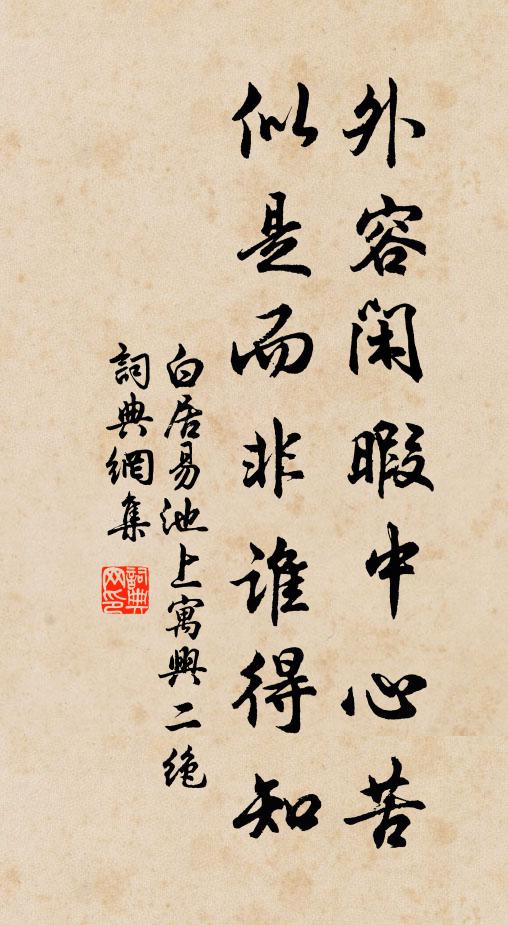 外容閑暇中心苦
似是而非誰得知
白居易池上寓興二絶
詞典網集
詞典網印